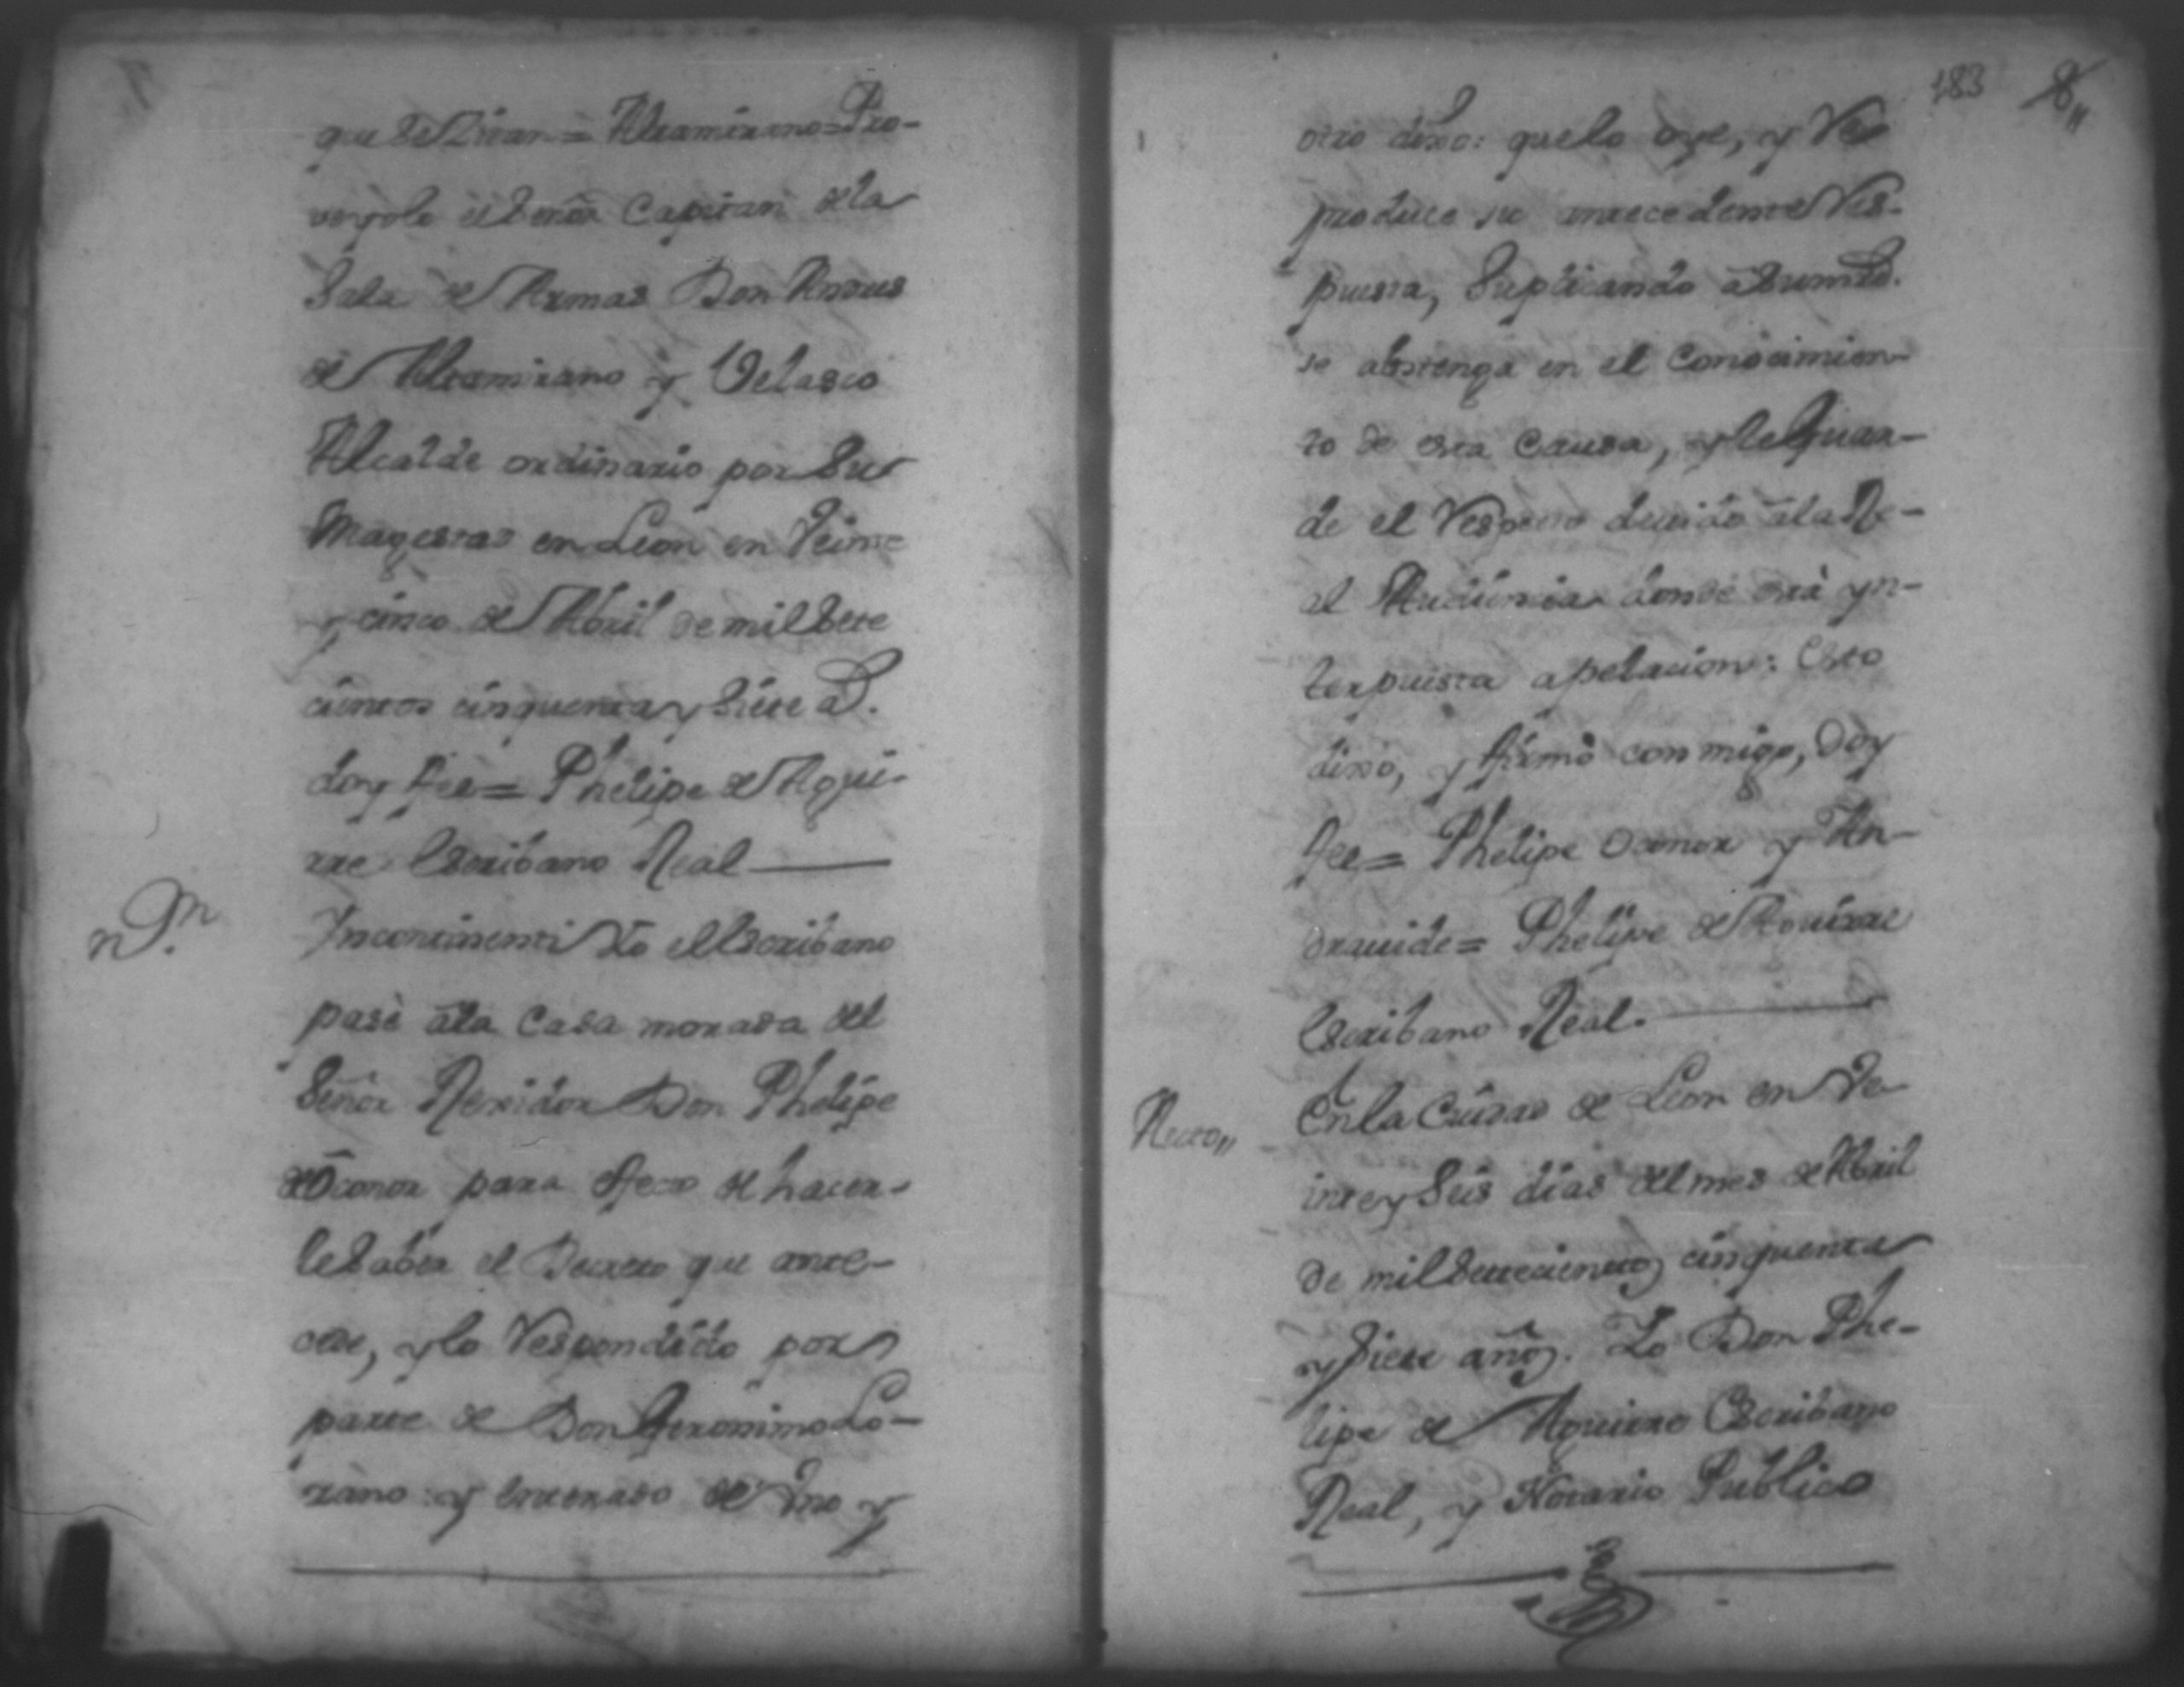 que se diran = Altamirano = Pro-
veyole el señor Capitan de la
Sala de Armas Don Andres
de Altamirano y Velasco
Alcalde ordinario por Su
Magestad en Leon en Veinte
y cinco de Abril de mil Sete
cientos cinquenta y Siete a.s
doy fee = Phelipe de Agui-
rre Escribano Real
n.on
Yncontinenti Yo el Escribano
pasè a la Casa morada del
Señor Rexidor Don Phelipe
de Oconor para efecto de hacer-
le Saber el Decreto que ante-
cede, y lo Respondido por
parte de Don Geronimo Lo-
zano y enterado de Uno y
183
8,,
otro dixo: que lo oye, y Re
produce su antecedente Res-
puesta, Suplicando a Su md.
se abstenga en el Conocimien-
to de esta Causa, y le Guar-
de el Respeto devido a la Re-
al Audiencia donde està yn-
terpuesta apelacion: Esto
dixo, y firmò conmigo, Doy
fee = Phelipe Oconor y An-
drauide = Phelipe de Aguirre
Escribano Real.
En la Ciudad de Leon en Ve-
inte y Seis dias del mes de Abril
de mil Setecientos cinquenta
y Siete años. Yo Don Phe-
lipe de Aguirre Escribano
Real, y Notario Publico